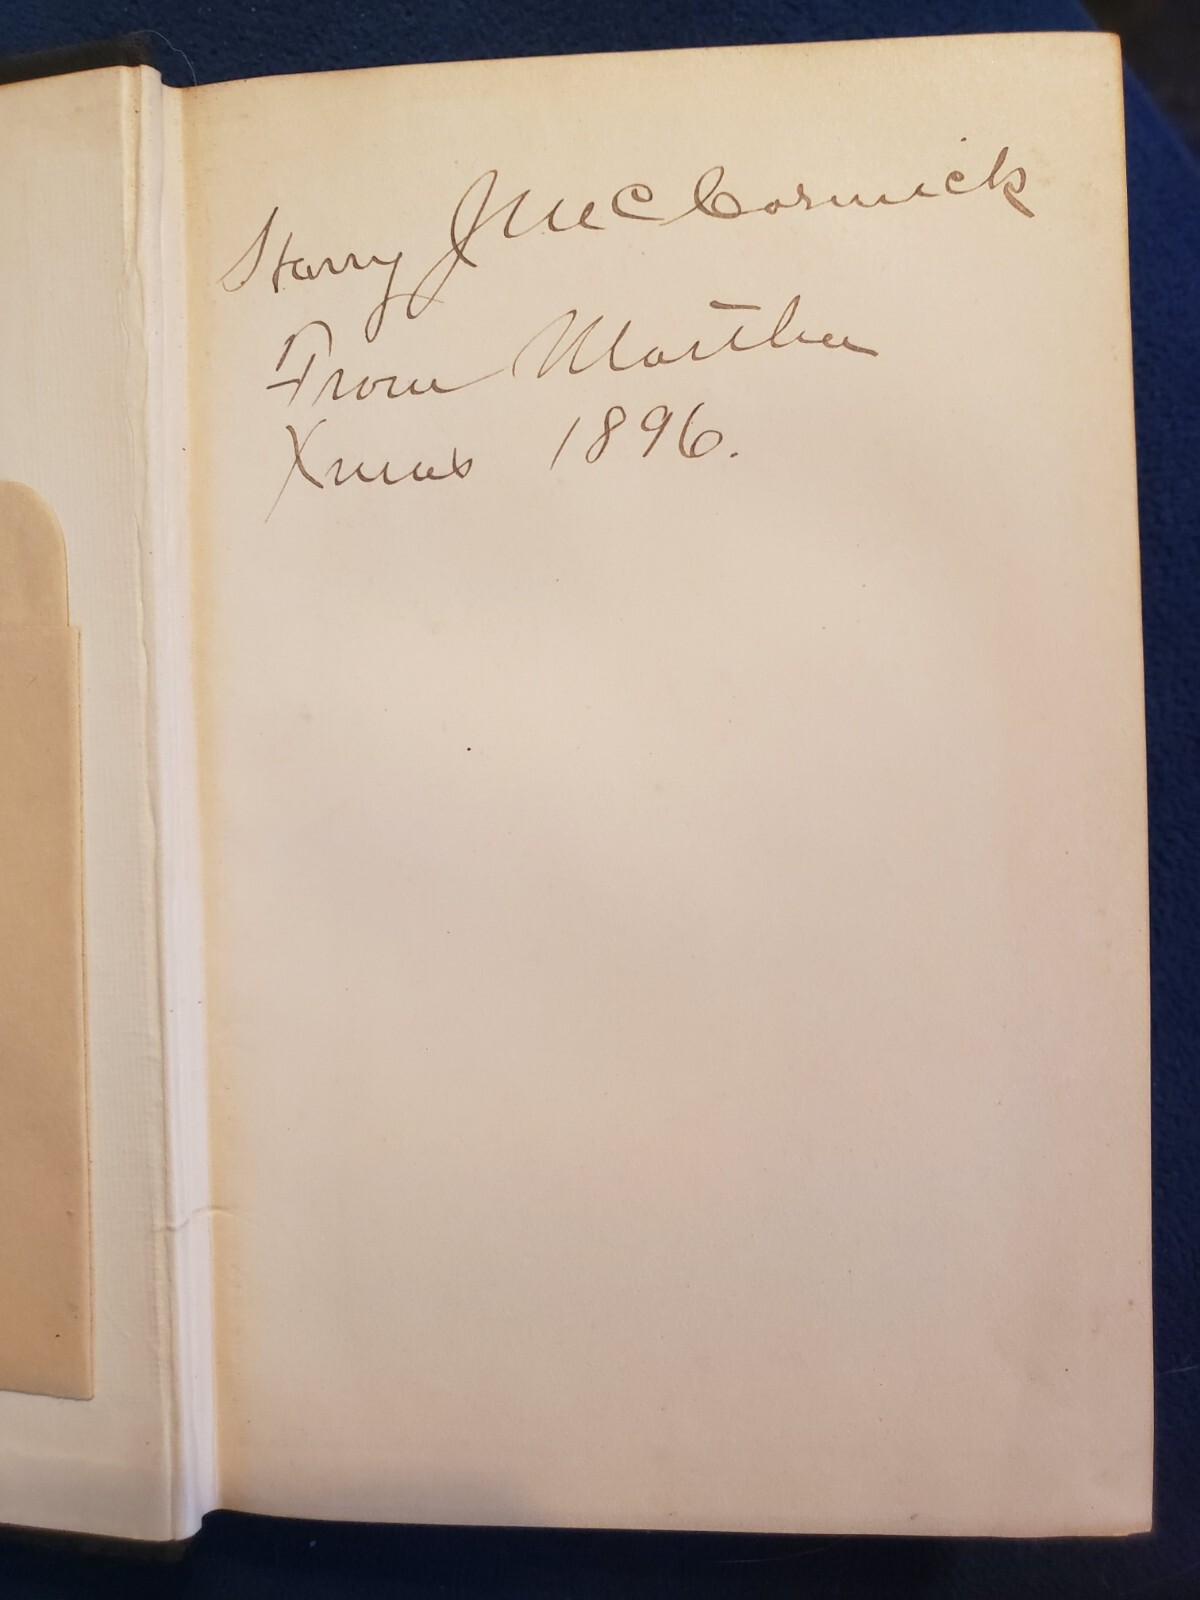 Harry J McCormick
From Martha
Xmas 1896.